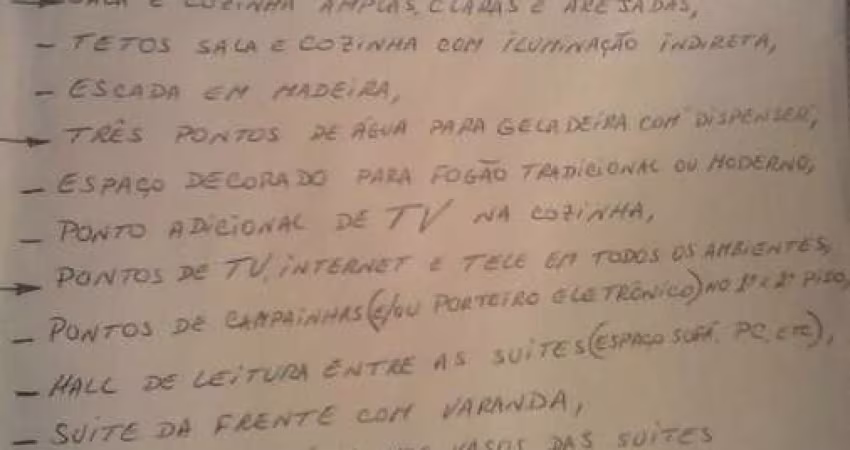 SALA E COZINHA AMPLAS, CLARAS E AREJADAS,
- TETOS SALA E COZINHA COM ILUMINAÇÃO INDIRETA,
- ESCADA EM MADEIRA,
→ TRÊS PONTOS DE ÁGUA PARA GELADEIRA COM "DISPENSER",
- ESPAÇO DECORADO PARA FOGÃO TRADICIONAL OU MODERNO,
- PONTO ADICIONAL DE TV NA COZINHA,
→ PONTOS DE TV, INTERNET E TELE EM TODOS OS AMBIENTES,
- PONTOS DE CAMPAINHAS (E/OU PORTEIRO ELETRÔNICO) NO 1º E 2º PISO,
- HALL DE LEITURA ENTRE AS SUITES (ESPAÇO SOFÁ, PC, ETC),
- SUITE DA FRENTE COM VARANDA,
VASOS DAS SUITES